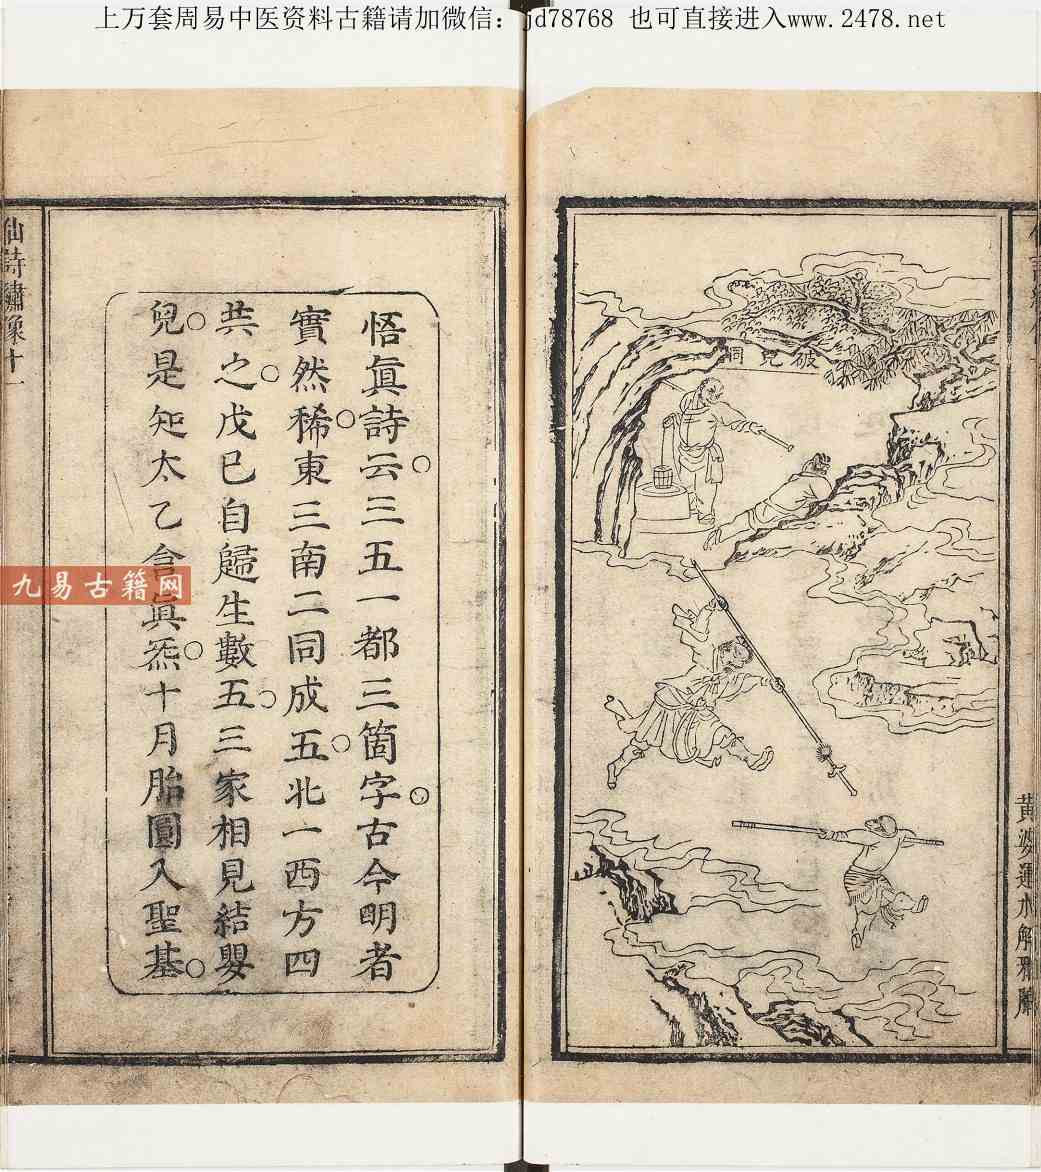 上万套周易中医资料古籍请加微信：jd78768 也可直接进入www.2478.net
破兒洞
黃婆運水解邪魔
悟眞詩云三五一都三箇字古今明者
實然稀東三南二同成五北一西方四
共之戊己自歸生數五三家相見結嬰
兒是知太乙含眞炁十月胎圓入聖基
仙詩繡像十一
九易古籍网